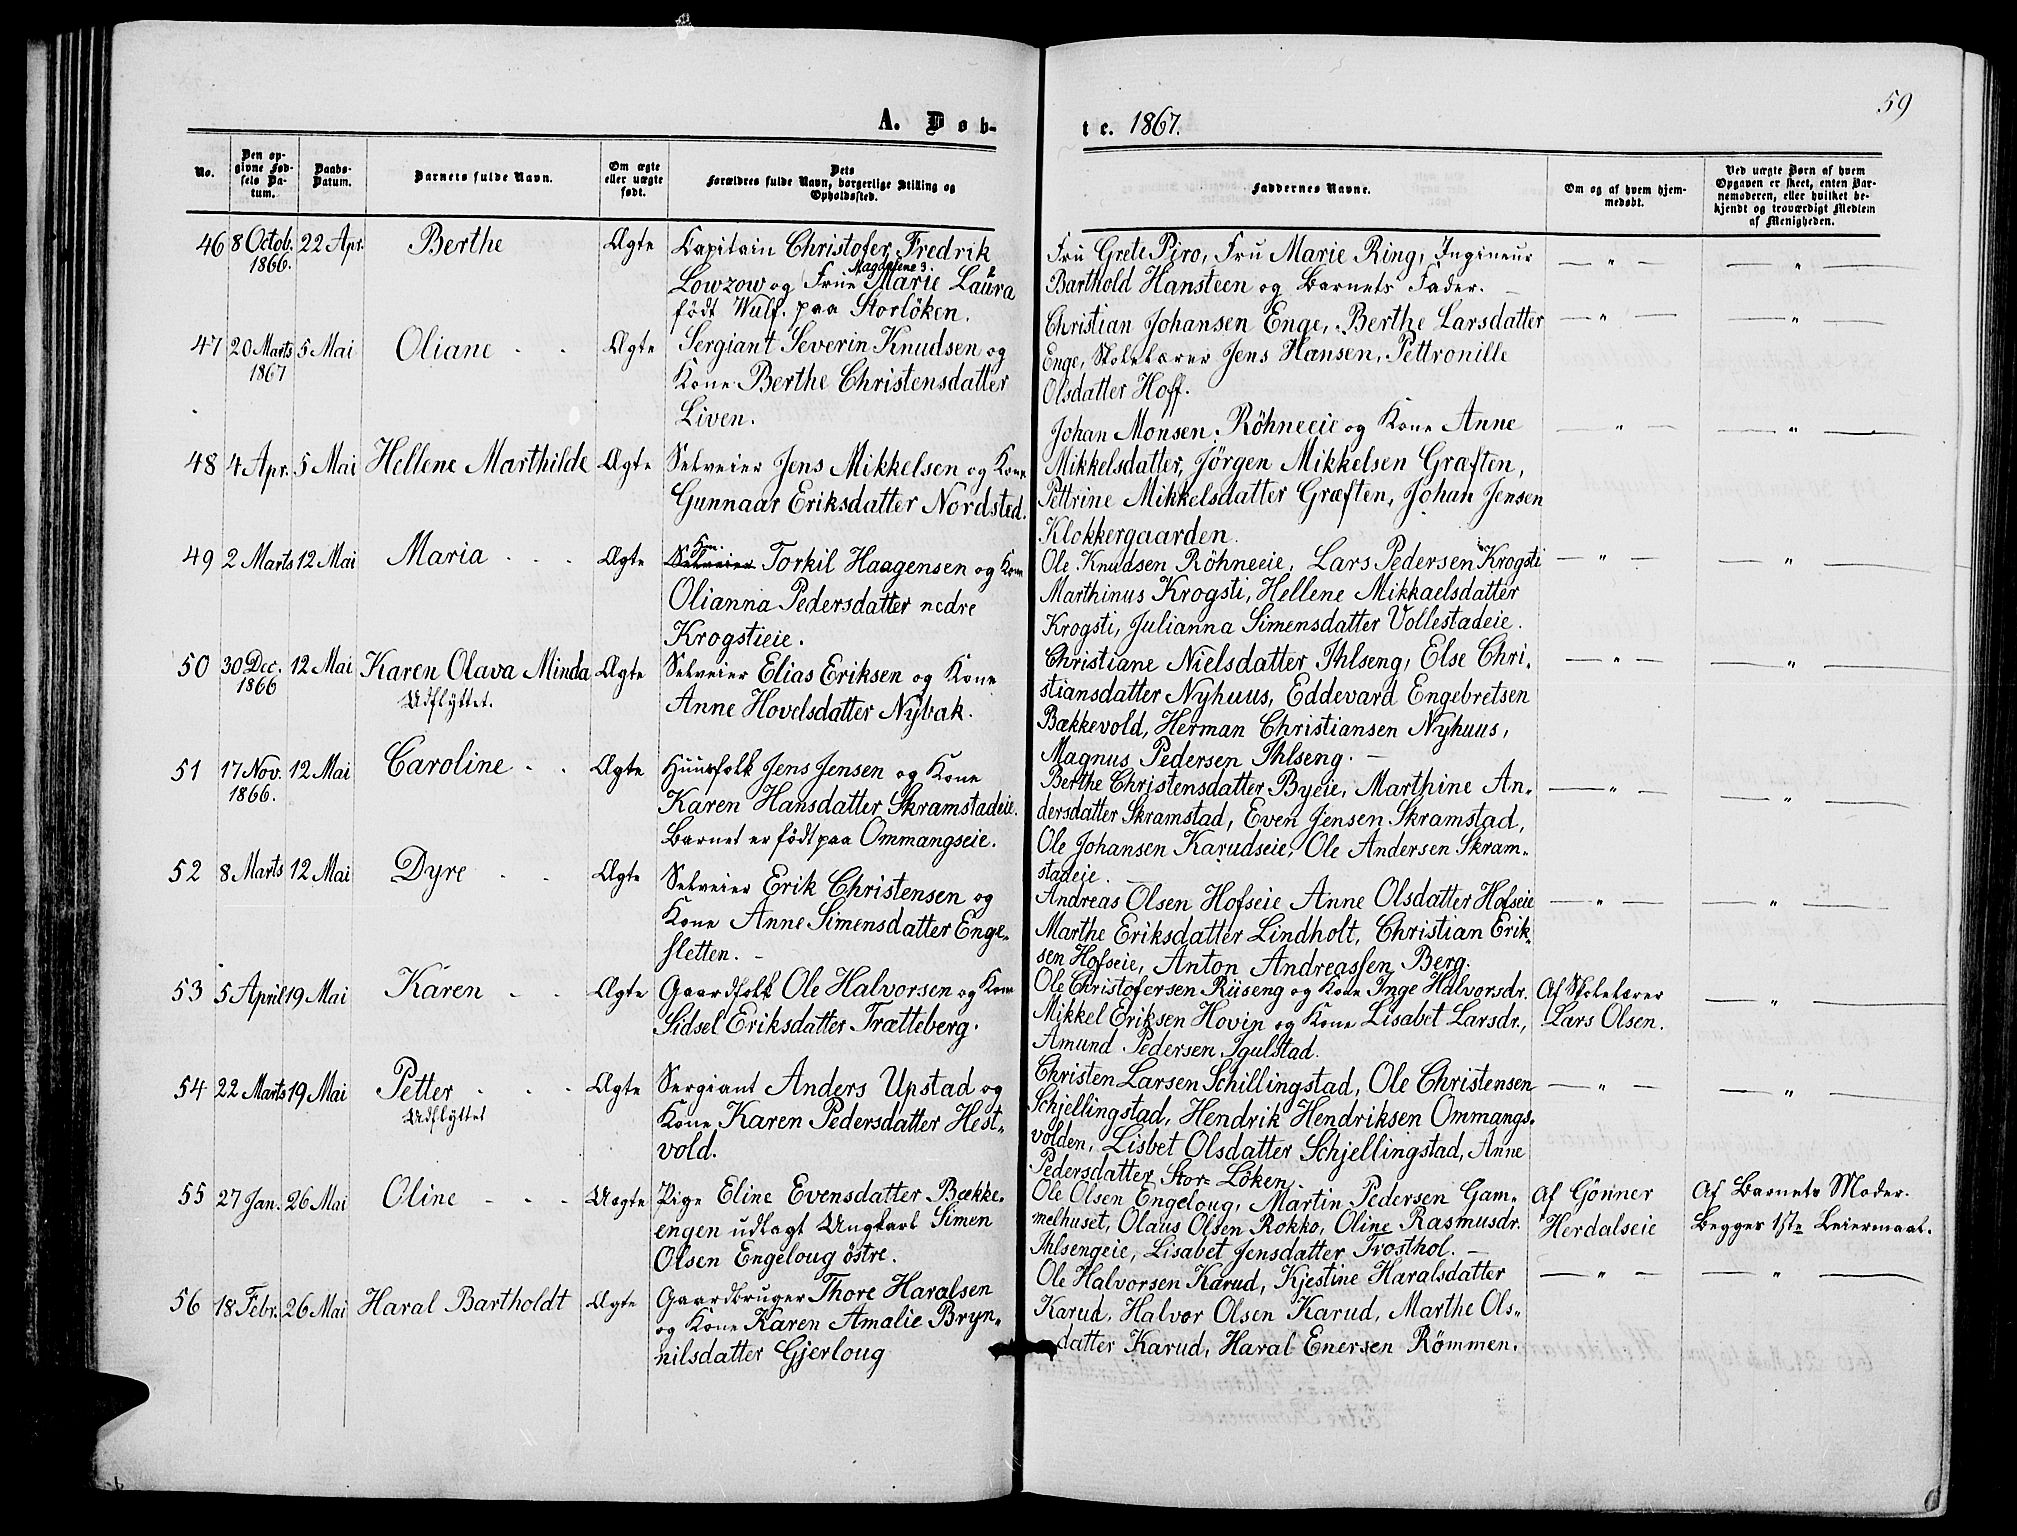 59
A. Døb-
te. 1867.
No.
Den op-
givne Fød-
sels Da-
tum.
Daabs-
Datum.
Barnets fulde Navn.
Om ægte
eller uægte
født.
Dets
Forældres fulde Navn, borgerlige Stilling og
Opholdssted.
Faddernes Navne.
Om og af hvem hjem-
medøbt.
Ved uægte Børn af hvem
Opgaven er skeet, enten Bar-
nemoderen, eller hvilket be-
kjendt og troværdigt Medlem
af Menigheden.
46 8 Octob. 22 Apr. Berthe Ægte Capitain Christofer Fredrik
1866.
Magdalene 3.
Lowzow og Frue Marie Laura
født Wulf. paa Storlöken.
Fru Grete Piro, Fru Marie Ring, Ingineur — " —  — " —
Barthold Hansteen og Barnets Fader. —
47 20 Marts 5 Mai Oliane - - Ægte Sergiant Severin Knudsen og
1867
Kone Berthe Christensdatter
Liven.
Christian Johansen Enge, Berthe Larsdatter — " —  — " —
Enge, Skolelærer Jens Hansen, Pettronille
Olsdatter Hoff.
48 4 Apr. 5 Mai Hellene Marthilde Ægte Selveier Jens Mikkelsen og Kone
Gunnaar Eriksdatter Nordsted.
Johan Monsen Röhneeie og Kone Anne — " —  — " —
Mikkelsdatter, Jörgen Mikkelsen Græften,
Pettrine Mikkelsdatter Græften, Johan Jensen
Klokkergaarden.
49 2 Marts 12 Mai Maria - - - Ægte Selveier Torkil Haagensen og Kone
Hm.
Olianna Pedersdatter nedre
Krogstieie.
Ole Knudsen Röhneeie, Lars Pedersen Krogsti — " —  — " —
Marthinus Krogsti, Hellene Mikkaelsdatter
Krogsti, Julianna Simensdatter Vollestadeie.
50 30 Dec. 12 Mai Karen Olava Minda Ægte Selveier Elias Eriksen og Kone
1866
Udflyttet.
Anne Hovelsdatter Nybak.
Christiane Nielsdatter Ihlseng, Else Chri- — " —  — " —
stiansdatter Nyhuus, Eddevard Engebretsen
Bækkevold, Herman Christiansen Nyhuus,
Magnus Pedersen Ihlseng. —
51 17 Nov. 12 Mai Caroline - - Ægte Huusfolk Jens Jensen og Kone
1866.
Karen Hansdatter Skramstadeie.
Barnet er födt paa Ommangseie.
Berthe Christensdatter Byeie, Marthine An- — " —  — " —
dersdatter Skramstad, Even Jensen Skramstad,
Ole Johansen Karudseie, Ole Andersen Skram-
stadeie. —
52 8 Marts 12 Mai Dyre - - Ægte Selveier Erik Christensen og
Kone Anne Simensdatter Enge-
sletten. —
Andreas Olsen Hofseie Anne Olsdatter Hofseie — " —  — " —
Marthe Eriksdatter Lindholt, Christian Erik-
sen Hofseie, Anton Andreassen Berg.
53 5 April 19 Mai Karen - - Ægte Gaardfolk Ole Halvorsen og Kone
Sidsel Eriksdatter Trætteberg.
Ole Christofersen Riiseng og Kone Inge Halvorsdr. Af Skolelærer — " —
Mikkel Eriksen Hovin og Kone Lisabet Larsdr., Lars Olsen.
Amund Pedersen Igulstad.
54 22 Marts 19 Mai Petter - - - Ægte Sergiant Anders Upstad og
Udflyttet
Kone Karen Pedersdatter Hest-
vold.
Christen Larsen Schillingstad, Ole Christensen — " —  — " —
Schjellingstad, Hendrik Hendriksen Ommangs-
volden, Lisbet Olsdatter Schjellingstad, Anne
Pedersdatter Stor-Löken.
55 27 Jan. 26 Mai Oline - - - Uægte Pige Eline Evensdatter Bække-
engen udlagt Ungkarl Simen
Olsen Engeloug östre.
Ole Olsen Engeloug, Martin Pedersen Gam- Af Gönner Af Barnets Moder.
melhuset, Olaus Olsen Rokko, Oline Rasmusdr. Herdalseie Begges 1ste Leiermaal.
Ihlsengeie, Lisabet Jensdatter Trosthol. —
56 18 Febr. 26 Mai Haral Bartholdt Ægte Gaardbruger Thore Haralsen
og Kone Karen Amalie Bryn-
nilsdatter Gjerloug
Ole Halvorsen Karud, Kjestine Haralsdatter — " —  — " —
Karud, Halvor Olsen Karud, Marthe Ols-
datter Karud, Haral Enersen Römmen.